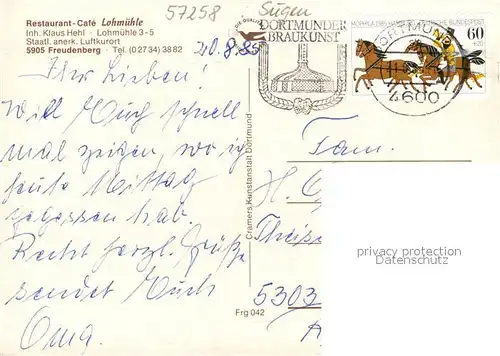 57258
Siegen
Restaurant-Café Lohmühle
Inh. Klaus Hehl · Lohmühle 3-5
Staatl. anerk. Luftkurort
5905 Freudenberg · Tel. (0 27 34) 38 82
DORTMUNDER
BRAUKUNST
DORTMUND
4600
DEUTSCHE BUNDESPOST
60
+20
20.8.85
Ihr Lieben!
Will Euch schnell
mal zeigen, wo ich
heute Mittag
gegessen hab.
Recht herzl. Grüße
sendet Euch
Oma.
Cramers Kunstanstalt Dortmund
Frg 042
Fam.
H.
5303
privacy protection
Datenschutz